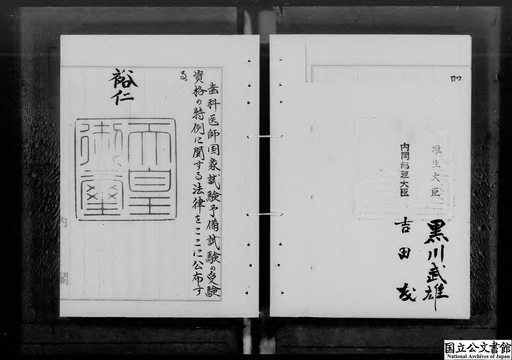 歯科医師国家試験予備試験の受験
資格の特例に関する法律をここに公布す
る
裕仁
天皇
御璽
内閣
厚生大臣
黒川武雄
内閣総理大臣
吉田茂
国立公文書館
National Archives of Japan